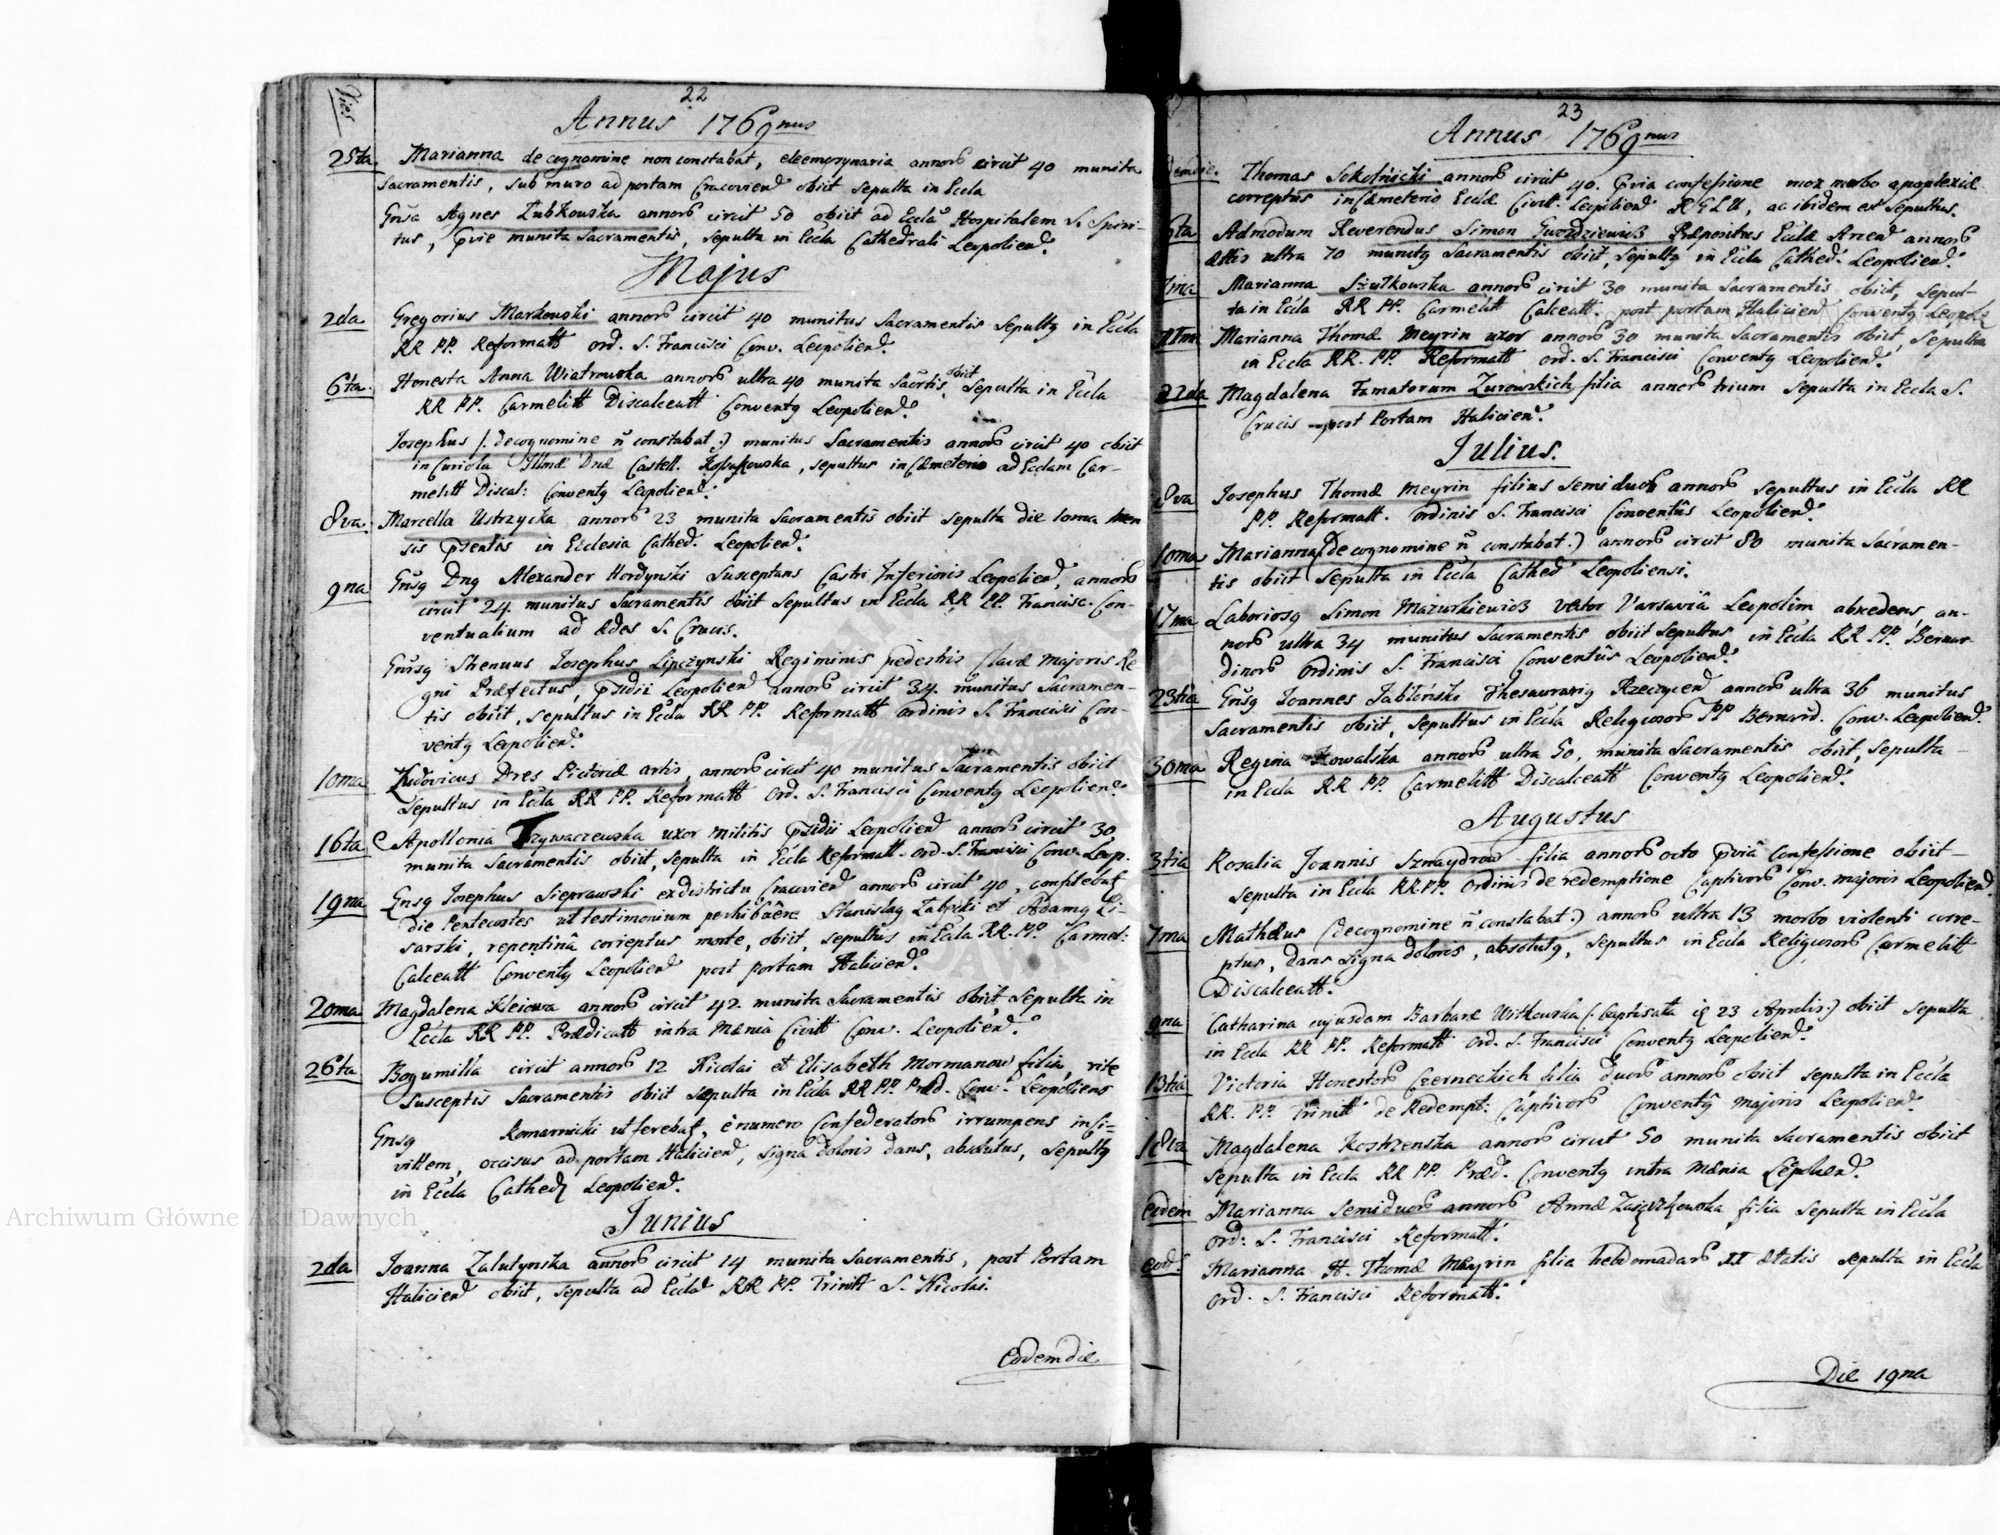 22
Dies
Annus 1769nus
25ta. Marianna de cognomine non constabat, eleemosynaria annorb circit 40 munita
sacramentis, sub muro ad portam Cracoviend obiit sepulta in Eccla
Gnsa Agnes Lubkowska annorb circit 50 obiit ad Eccla Hospitalem S. Spiri-
tus, pvie munita Sacramentis, sepulta in Eccla Cathedrali Leopoliend.
Majus
2da Gregorius Markowski annorb circit 40 munitus Sacramentis Sepultq in Eccla
RR PP. Reformatt ord. S. Francisci Conv. Leopoliend.
6ta. Honesta Anna Wiatrowska annorb ultra 40 munita Sacrtis obiit Sepulta in Eccla
RR PP. Carmelitt Discalceatt Conventq Leopoliend.
Josephus (: de cognomine ñ constabat :) munitus Sacramentis annorb circit 40 obiit
in Curiola Illmæ Dnæ Castell. sepultus in Cæmeterio ad Ecclam Car-
melitt Discal: Conventq Leopoliend.
8va. Marcella Ustrzycka annorb 23 munita Sacramentis obiit sepulta die 10ma men
sis psentis in Ecclesia Cathed. Leopoliend.
9na Gnsq Dnq Alexander Hordynski Susceptans Castri Inferioris Leopoliend, annorb
circit 24. munitus Sacramentis obiit Sepultus in Eccla RR PP. Francisc. Con-
ventualium ad Ædes S. Crucis.
Gnrsq Strenuus Josephus Lipczynski Regiminis pedestris Clavæ Majoris Re-
gni Præfectus, psidii Leopoliend annorb circit 34. munitus Sacramen-
tis obiit, sepultus in Eccla RR PP. Reformatt ordinis S. Francisci Con-
ventq Leopoliend.
10ma Ludovicus Dres Pictoriæ artis, annorb circit 40 munitus Sacramentis obiit
Sepultus in Eccla RR PP. Reformatt Ord. S. Francisci Conventq Leopoliend.
16ta Apollonia Trzywaczewska uxor militis psidii Leopoliend annorb circit 30
munita Sacramentis obiit, sepulta in Eccla Reformatt. ord. S. Francisci Conv. Leop.
19na Gnsq Josephus Sieprawski ex districtu Cracoviend annorb circit 40, confitebat
die Pentecostes ut testimonium perhibuere Stanislaq Zabecki et Adamq Li-
sarski, repentinâ correptus morte, obiit, sepultus in Eccla RR. PP. Carmel:
Calceatt Conventq Leopoliend post portam Halicien.
20ma Magdalena Kleiowa annorb circit 42 munita Sacramentis obiit, sepulta in
Eccla RR PP. Prædicatt intra Mænia Civitt Conv. Leopoliend.
26ta Bogumilla circit annorb 12 Nicolai et Elisabeth Mormanow filia, rite
susceptis Sacramentis obiit sepulta in Eccla RR PP. Præd. Conv. Leopoliens
Gnsq Komarnicki ut ferebat, è numero Confederatorb irrumpens in Ci-
vittem, occisus ad portam Haliciend, signa doloris dans, absolutus, sepultq
in Eccla Cathed Leopoliend.
Junius
2da Joanna Zalutynska annorb circit 14 munita Sacramentis, post Portam
Haliciend obiit, sepulta ad Ecclæ RR PP. Trinitt S. Nicolai.
Eodem die
23
Annus 1769nus
Eodem die. Thomas Sokolnicki annorb circit 40. pvia confessione mox morbo apoplexiæ
correptus in Cæmeterio Ecclæ Civit. Leopoliend ac ibidem est sepultus.
6ta Admodum Reverendus Simon Gwozdziewicz Præpositus Ecclæ annorb
ættis ultra 70 munitq Sacramentis obiit, Sepultq in Eccla Cathed. Leopoliend.
7ma Marianna Szulkowska annorb circit 30 munita Sacramentis obiit, sepul-
ta in Eccla RR PP. Carmelitt Calceatt. post portam Haliciend Conventq Leopold
11ma Marianna Thomæ Meyrin uxor annorb 30 munita Sacramentis obiit, Sepulta
in Eccla RR. PP. Reformatt ord. S. Francisci Conventq Leopoliend.
22da Magdalena Famatorum Zurowskich filia annorb trium sepulta in Eccla S.
Crucis post Portam Halicien.
Julius.
8va Josephus Thomæ Meyrin filius semi duorb annorb sepultus in Eccla RR
PP. Reformatt. ordinis S. Francisci Conventûs Leopoliend.
10ma Marianna (: de cognomine ñ constabat :) annorb circit 80 munita Sacramen-
tis obiit Sepulta in Eccla Cathed Leopoliensi.
17ma Laboriosq Simon Mazurkiewicz vector Varsaviâ Leopolim abscedens, an-
norb ultra 34 munitus Sacramentis obiit Sepultus in Eccla RR PP. Bernar-
dinorb ordinis S. Francisci Conventûs Leopoliend.
23tia Gnsq Joannes Jabłoński Thesaurariq Rzeczycend annorb ultra 36 munitus
Sacramentis obiit, Sepultus in Eccla Religiosorb PP Bernard. Conv. Leopoliend.
30ma Regina Kowalska annorb ultra 50, munita Sacramentis obiit, sepulta
in Eccla RR PP. Carmelitt Discalceatt Conventq Leopoliend.
Augustus
3tia Rosalia Joannis Sznaydrow filia annorb octo pviâ Confessione obiit
sepulta in Eccla RR PP. Ordinis de redemptione Captivorb Conv. majoris Leopoliend
7ma Mathæus (de cognomine ñ constabat :) annorb ultra 13 morbo violenti corre-
ptus, dans signa doloris, absolutq, sepultus in Eccla Religiosorb Carmelitt
Discalceatt.
9na Catharina cujusdam Barbaræ Witkowska (: baptisata 23 Aprilis :) obiit sepulta
in Eccla RR PP. Reformatt ord. S. Francisci Conventq Leopoliend.
13tia Victoria Honestorb Czerneckich filia duorb annorb obiit sepulta in Eccla
RR. PP. Trinitt de Redempt: Captivorb Conventq majoris Leopoliend.
18va Magdalena Kostrzenska annorb circit 50 munita Sacramentis obiit
sepulta in Eccla RR PP. Præd. Conventq intra Mænia Leopoliend.
Eadem Marianna semi duorb annorb Annæ filia sepulta in Eccla
Ord: S. Francisci Reformatt.
Eod: Marianna H. Thomæ Meyrin filia hebdomadarb ætatis sepulta in Eccla
ord. S. Francisci Reformatt.
Die 19na
Archiwum Główne Akt Dawnych